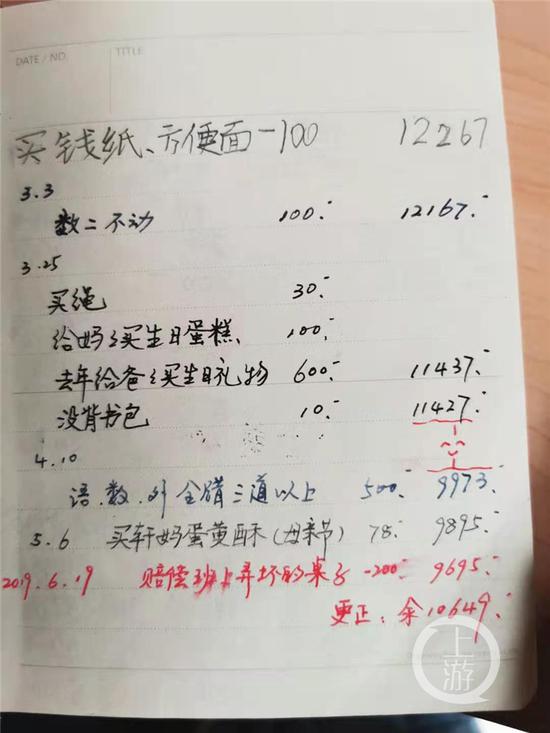 DATE / NO. TITLE
买钱纸、方便面-100 12267
3.3
数二不动 100.- 12167.-
3.25
买绳 30.-
给妈妈买生日蛋糕、 100.-
去年给爸爸买生日礼物 600.- 11437.-
没背书包 10.- 11427.-
4.10
语、数、外全错三道以上 500. 9973.-
5.6 买轩妈蛋黄酥(母亲节) 78.- 9895.-
2019.6.19 赔偿班上弄坏的桌子 -200.- 9695.-
更正:余10649.-
上游